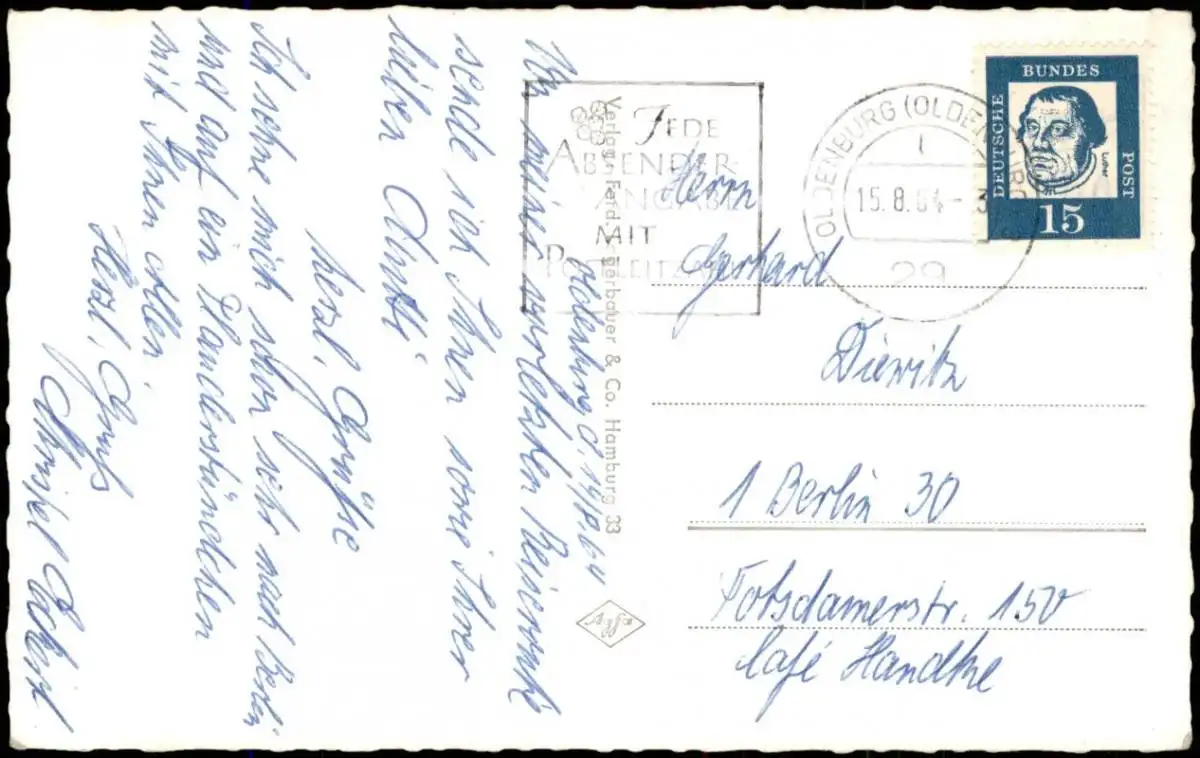 Oldenburg d. 14/8 64
In meiner vorletzten Reisewoche
sende ich Ihnen sowie Ihrer
lieben
herzl. Grüße
Ich sehne mich schon sehr nach Berlin
und auf ein Plauderstündchen
mit Ihnen allen
Herzl. Gruß
Verlag Ferd. Lagerbauer & Co. Hamburg 33
JEDE
ABSENDER-
ANGABE
MIT
POSTLEITZAHL
OLDENBURG (OLDENBURG)
15.8.64-
29
DEUTSCHE
BUNDES
POST
Luther
15
Herrn
Gerhard
Diewitz
1 Berlin 30
Potsdamerstr. 150
Café Handtke